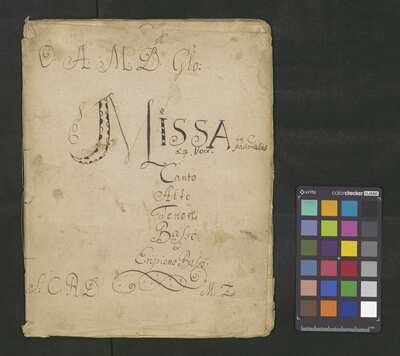 O A M D Glo:
MISSA
in C
à 4. Voix. pastoralis
Canto
Alto
Tenore
Basso
Enpieno Basso
C. R. D M. Z
x-rite colorchecker CLASSIC